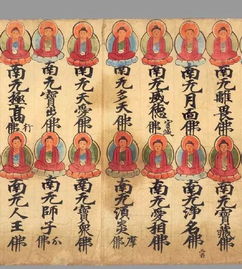 南无離畏佛
南无月面佛
南无威德寂滅佛
南无多天佛
南无天愛佛
南无寶佛
南无極高行佛
南无寶藏佛
南无淨名佛
南无愛相佛
南无須炎摩佛
南无寶衆佛
南无師子分佛
南无人王佛